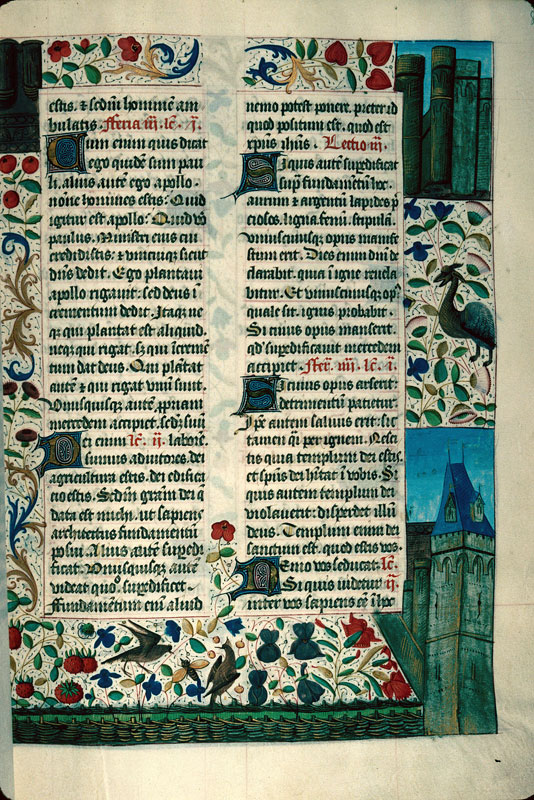 estis. et sedm hominem am
bulatis. Feria iii. lc. i.
Cum enim quis dicat
ego quidē sum pau
li. alius autē ego apollo.
nōne homines estis. Quid
igitur est apollo: Quid vo
paulus. Ministri eius cui
credidistis: et vnicuique sicut
dn̄s dedit. Ego plantaui
apollo rigauit. sed deus i
crementum dedit. Itaque ne
que qui plantat est aliquid.
neque qui rigat. sed qui īcremē
tum dat deus. Qui plātat
autē et qui rigat vnū sunt.
Vnusquisque autē ꝓpriam
mercedem accipiet. sedm suū
Dei enim lc. ii. laborē.
sumus adiutores. dei
agricultura estis. dei edifica
cio estis. Sedm̄ graām dei que
data est michi. ut sapiens
architectus fundamentū
posui. Alius autē suꝑedi
ficat. Vnusquisque autē
videat quō suꝑedificet.
Fundamētum enī aliud
nemo potest ponere. preter id
quod positum est. quod est
xp̄us ih̄us. Lectio iii.
Si quis autē suꝑedificat
suꝑ fundamētū hoc.
aurum et argentū lapides p̄
ciosos. ligna. fenū. stipulā.
vniuscuiusque opus manife
stum erit. Dies enim dn̄i de
clarabit. quia ī igne reuela
bitur. Et vniuscuiusque opus
quale sit. ignis probabit.
Si cuius opus manserit.
qd̄ suꝑedificauit mercedem
accipiet. Feria iiii. lc. i.
Si cuius opus arserit:
detrimentū patietur.
Ipē autem saluus erit: sic
tamen quasi per ignem. Nesci
tis quia templum dei estis.
et sp̄us dei hītat ī vobis. Si
quis autem templum dei
violauerit: disperdet illū
deus. Templum enim dei
sanctum est. quod estis vos.
Nemo vos seducat. lc.
Si quis uidetur ii.
inter vos sapiens eē ī hoc